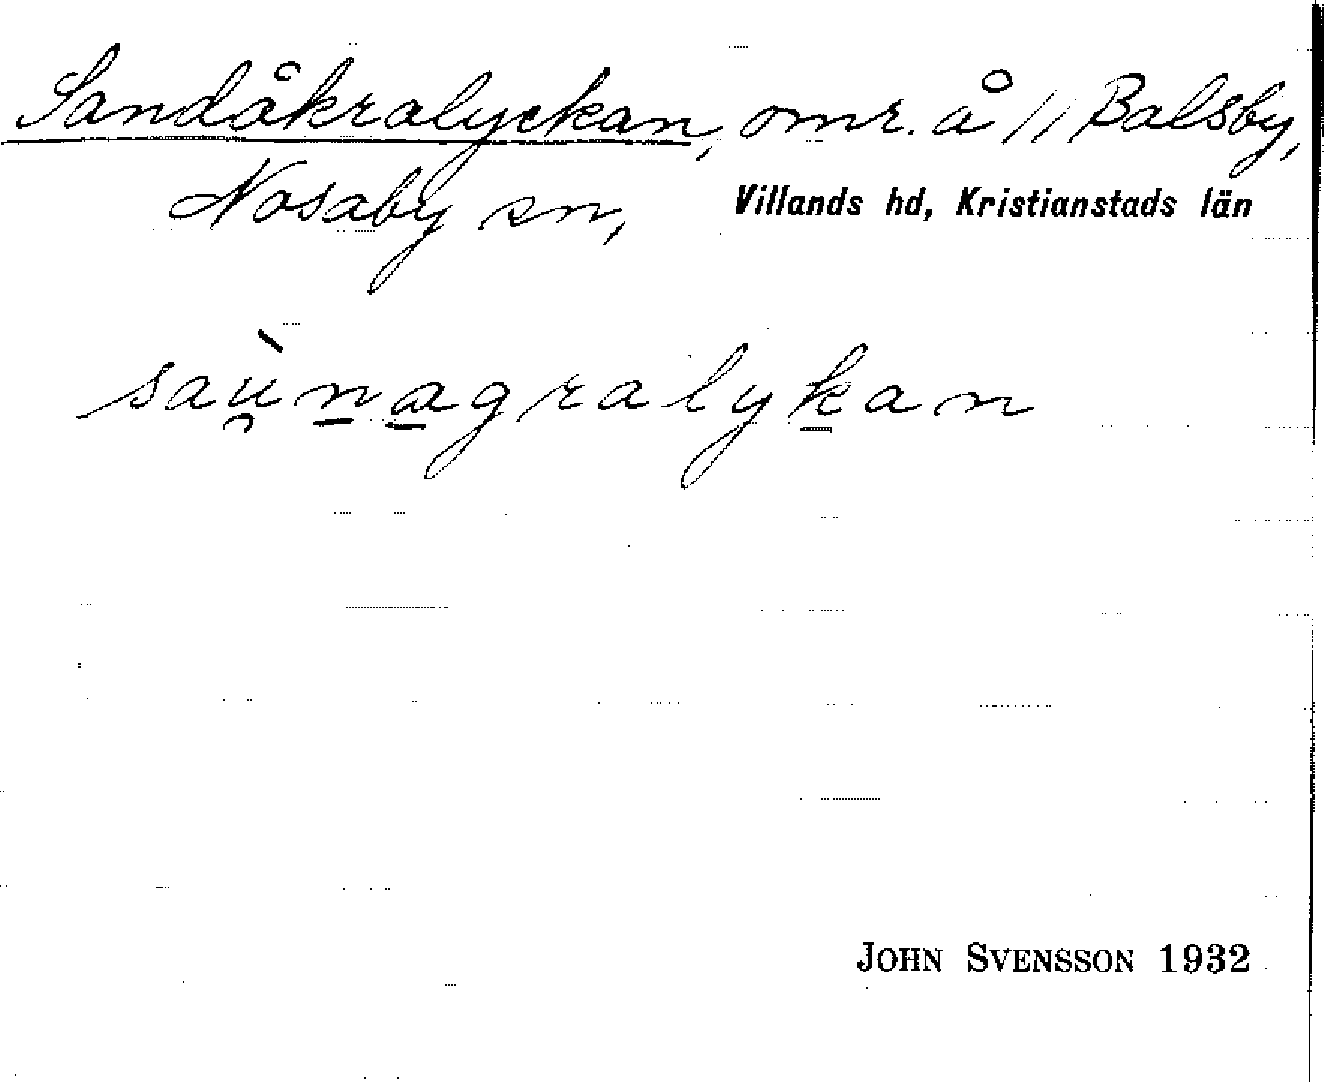 Sandåkralyckan, omr. å // Balsby,
Nosaby sn, Villands hd, Kristianstads län
saù̯n̲a̲gralyk̲an
JOHN SVENSSON 1932